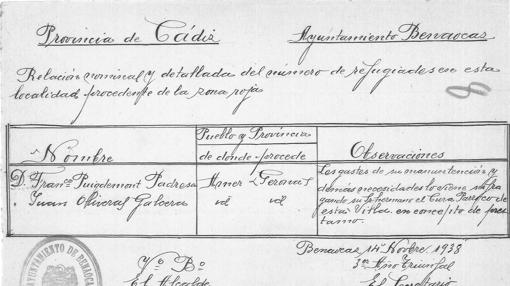 Provincia de Cádiz Ayuntamiento Benaocas
Relación nominal y detallada del número de refugiados en esta
localidad procedente de la zona roja
8
Nombre
Pueblo y Provincia
de donde procede
Observaciones
D. Franco Puigdemont Padresa
" Juan Oliveras
Amer Gerona
id id
Los gastos de su manutención y
demás necesidades lo viene sufra
gando su hermano el Cura Párroco de
esta Villa en concepto de pres
tamo.
Benaocas 14 Novbre. 1938
3er Año Triunfal
Vº Bº
El Alcalde
El Secretario
AYUNTAMIENTO DE BENAOCA